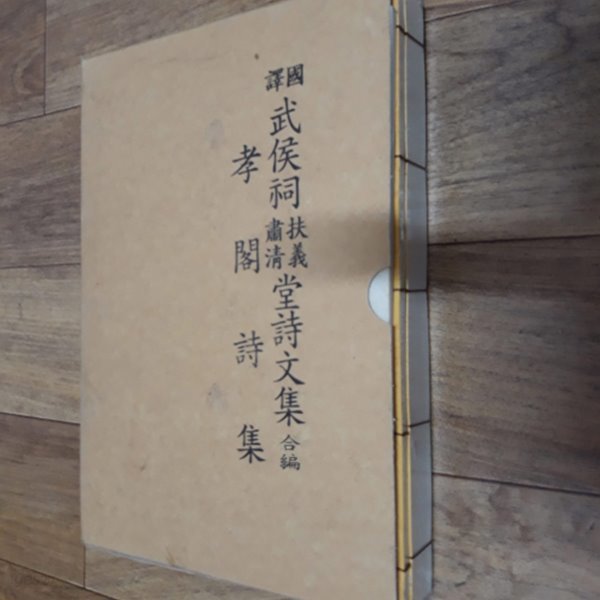 國譯 武侯祠 扶義 肅清 堂詩文集 合編
孝閣詩集